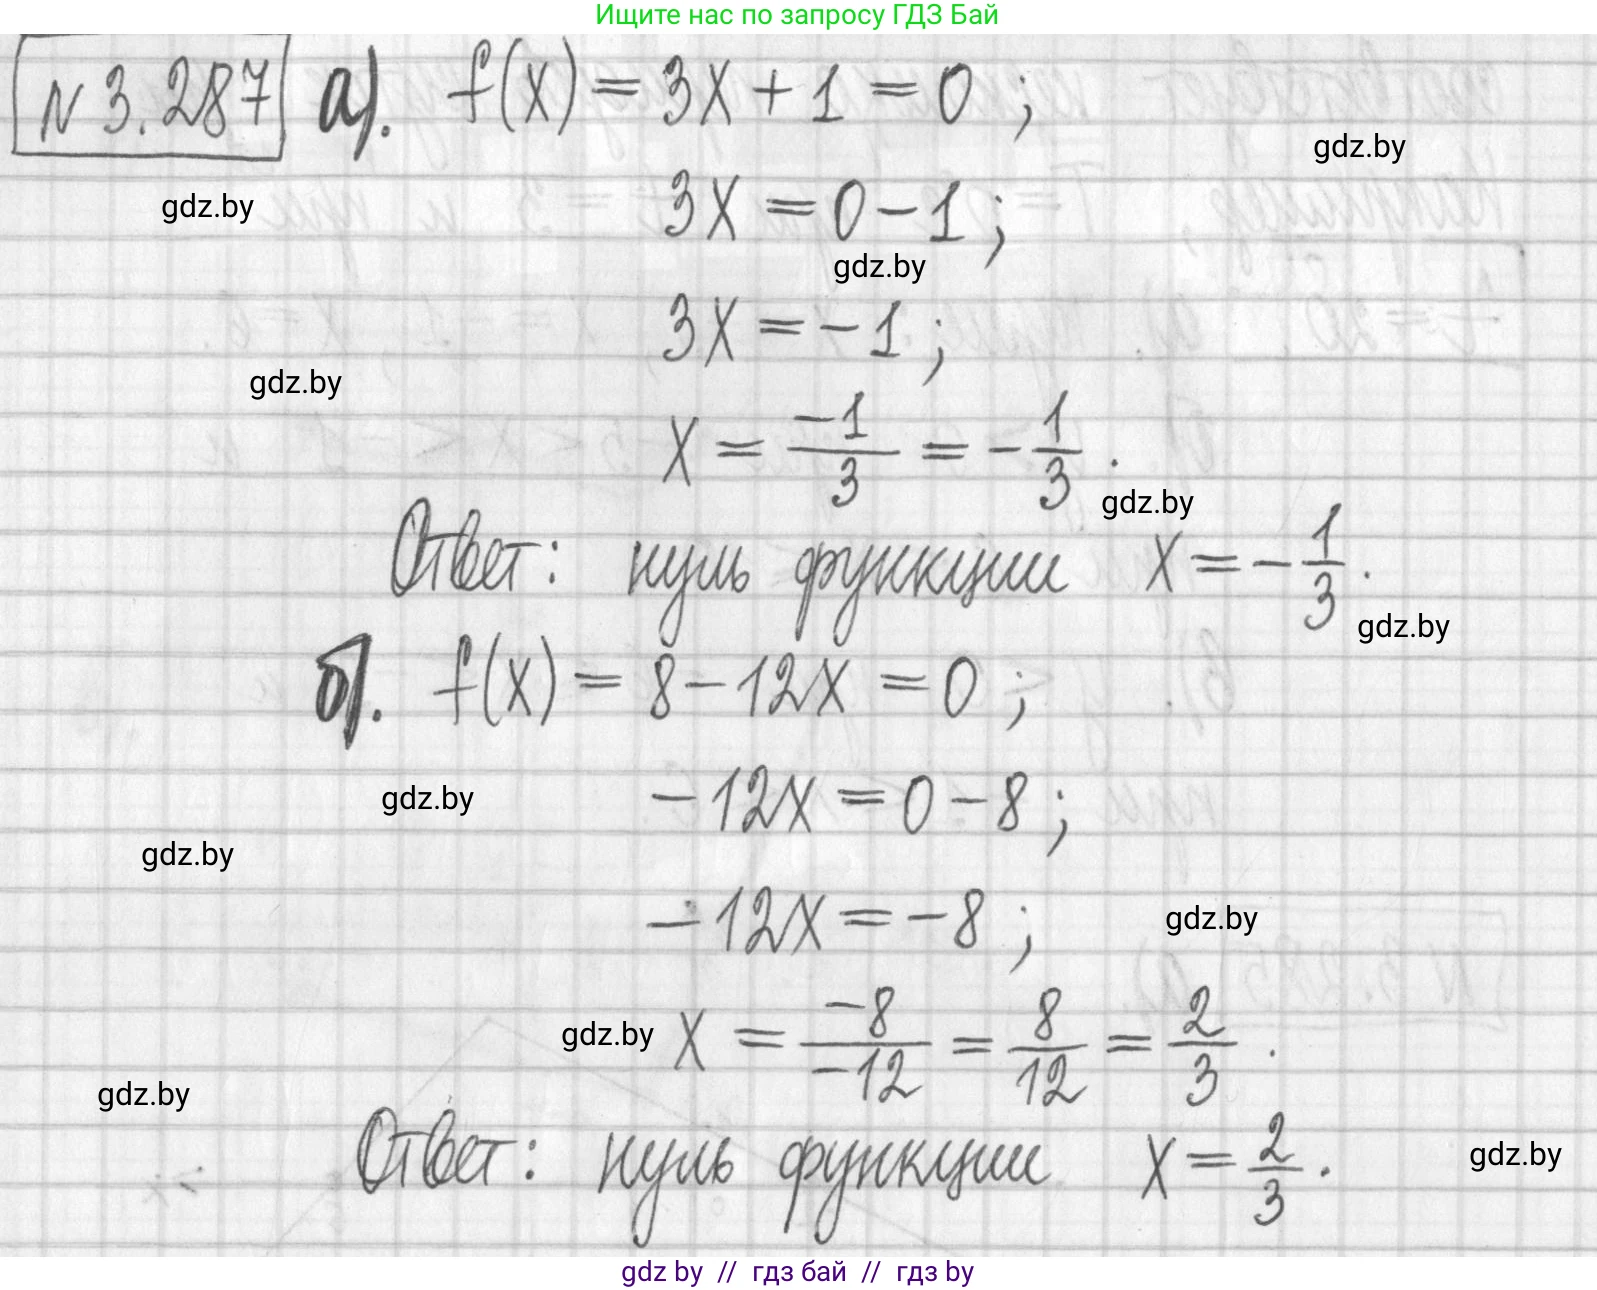 Ищите нас по запросу ГДЗ Бай
N 3.287 а). f(x) = 3x + 1 = 0 ;
gdz.by
gdz.by
3x = 0 - 1 ;
gdz.by
3x = -1 ;
gdz.by
x = -1/3 = -1/3 .
gdz.by
Ответ: нуль функции x = -1/3 .
gdz.by
б). f(x) = 8 - 12x = 0 ;
-12x = 0 - 8 ;
gdz.by
gdz.by
-12x = -8 ;
gdz.by
gdz.by x = -8/-12 = 8/12 = 2/3 .
gdz.by
Ответ: нуль функции x = 2/3 .
gdz.by
gdz by // гдз бай // гдз by